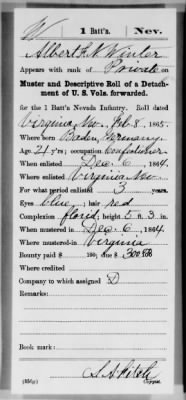 W 1 Batt'n. Nev.
Albert F. K. Winter
Appears with rank of Private on
Muster and Descriptive Roll of a Detach-
ment of U. S. Vols. forwarded.
for the 1 Batt'n Nevada Infantry. Roll dated
Virginia, Nev. Feb. 8, 1865.
Where born Baden, Germany
Age 21 y'rs; occupation Confectioner
When enlisted Dec. 6, 1864.
Where enlisted Virginia, Nev.
For what period enlisted 3 years.
Eyes blue; hair red
Complexion florid; height 5 ft. 3 in.
When mustered in Dec. 6, 1864.
Where mustered in Virginia
Bounty paid $ 100; due $ 300
Where credited
Company to which assigned D
Remarks:
Book mark:
Copyist.